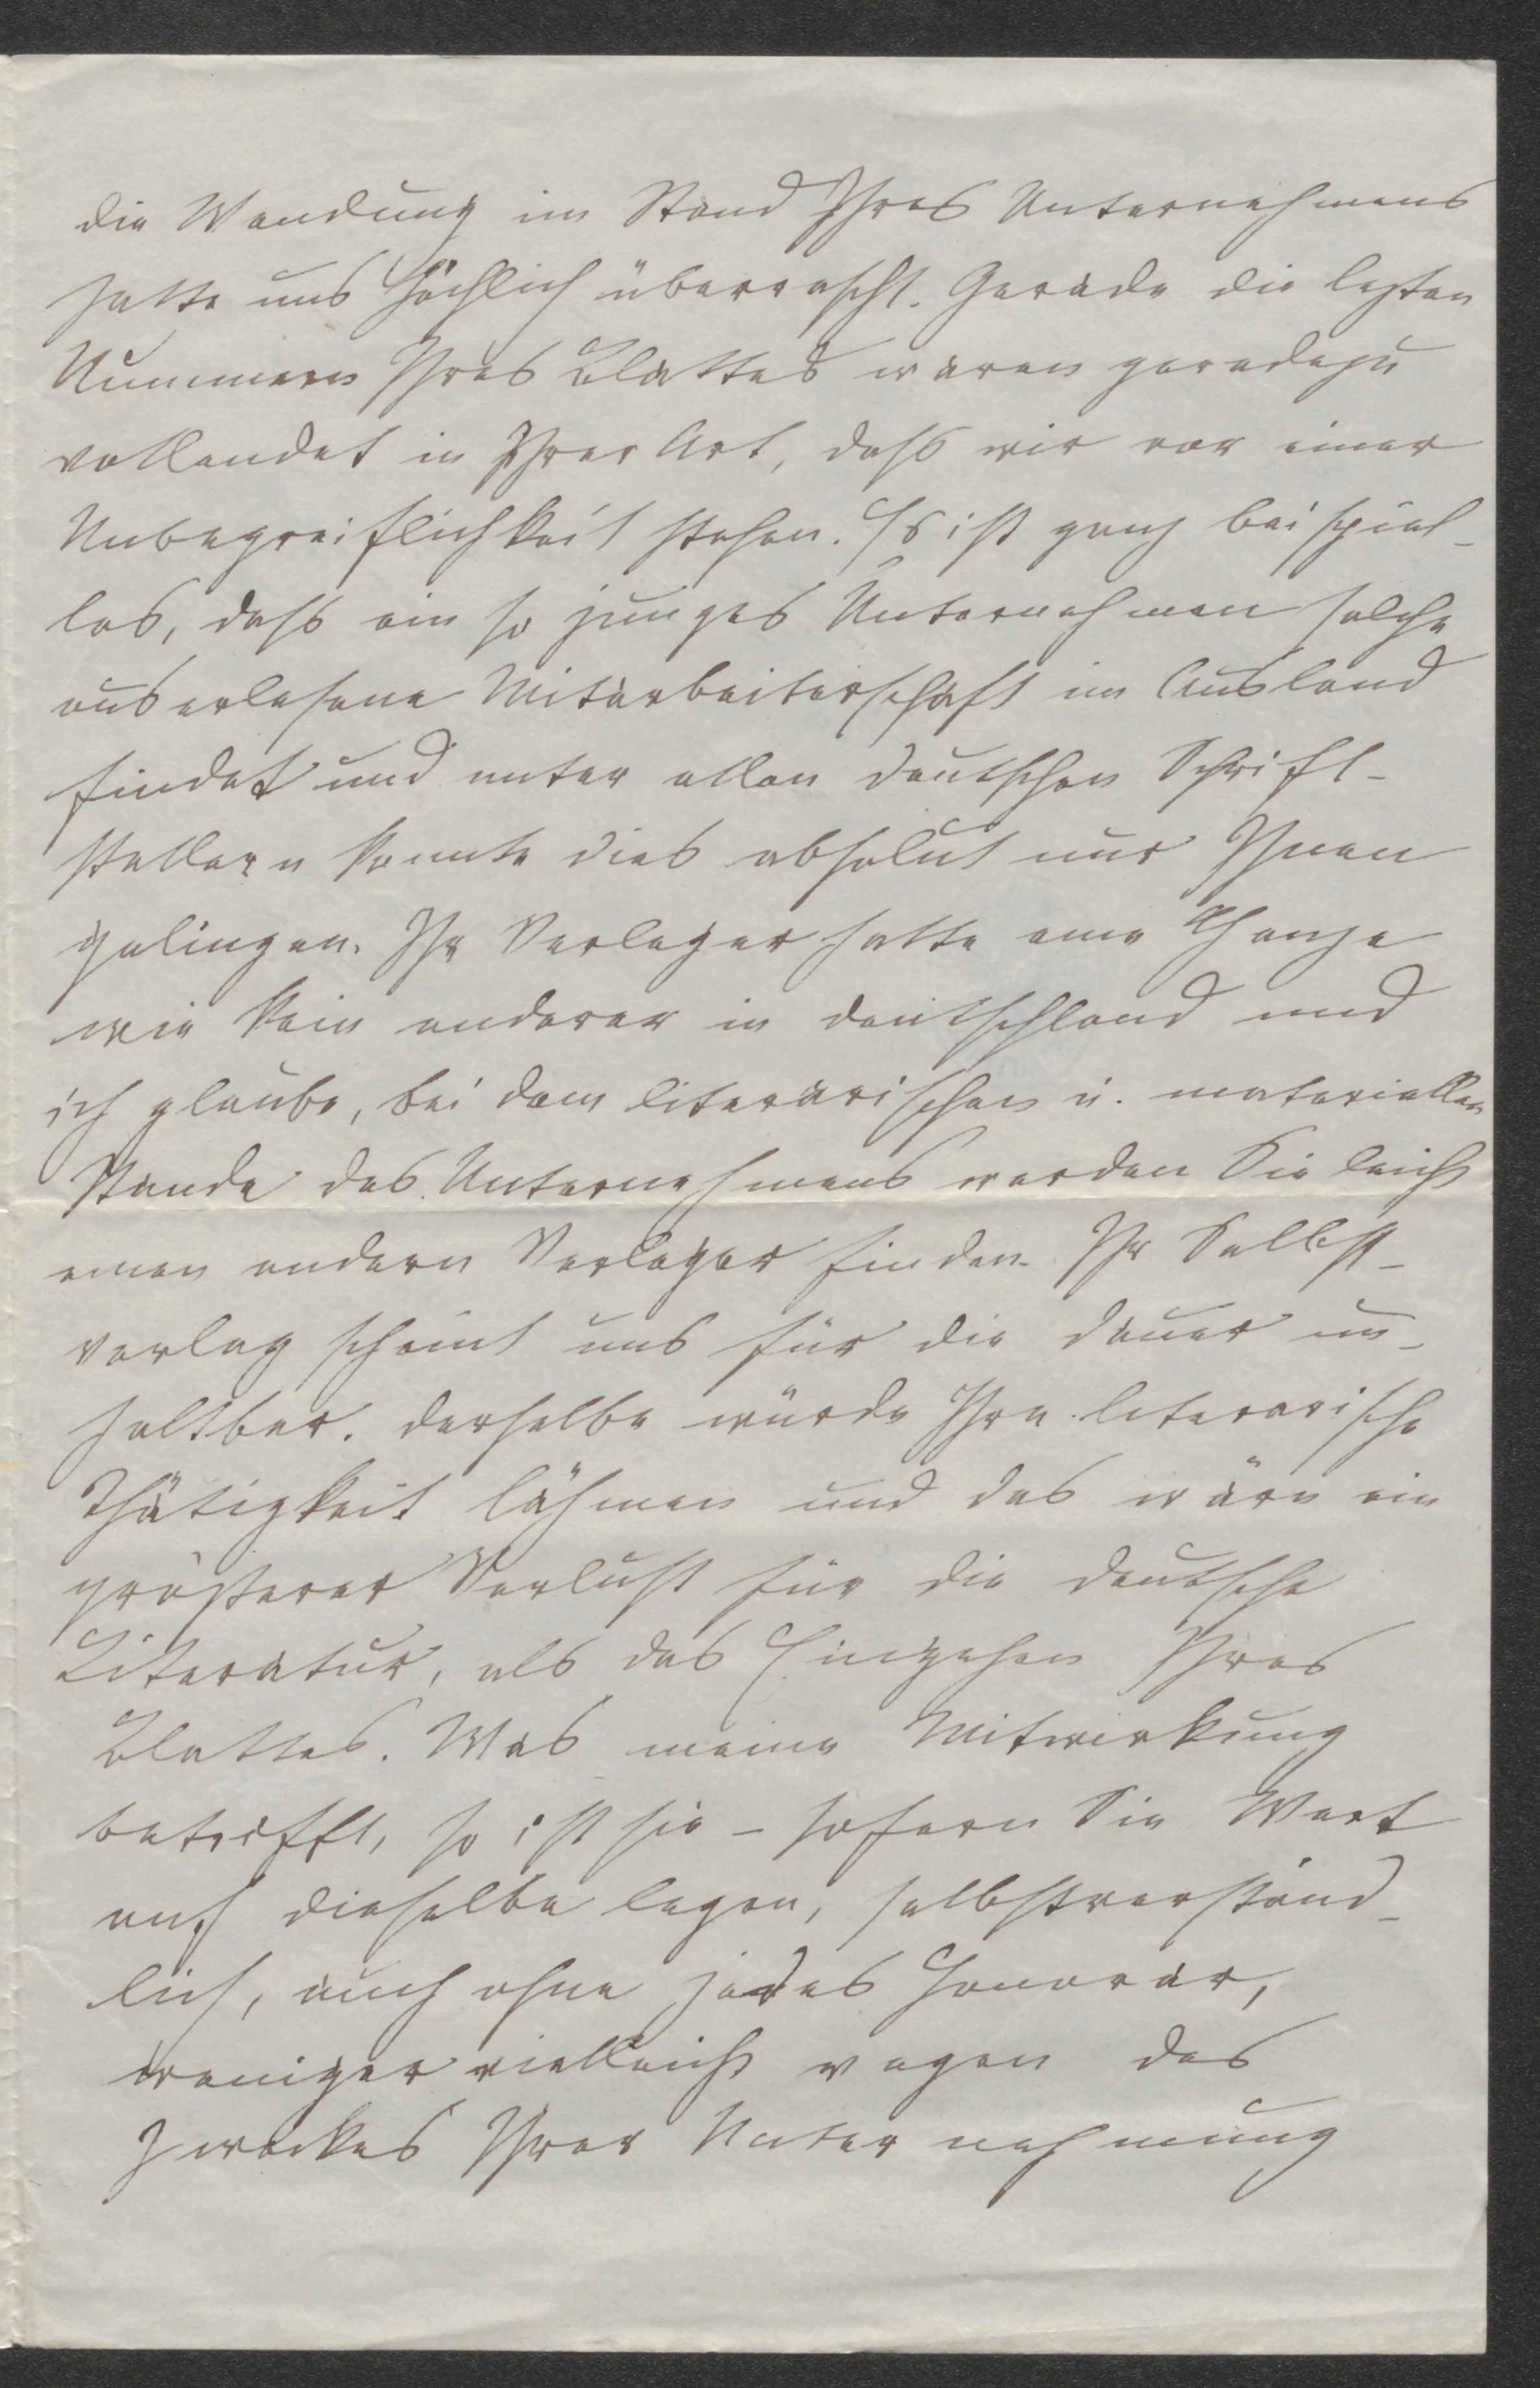 die Wendung im Stand Ihres Unternehmens
hatte uns höchlich überrascht. Gerade die lezten
Nummern Ihres Blattes waren geradezu
vollendet in Ihrer Art, dass wir vor einer
Unbegreiflichkeit stehen. Es ist ganz beispiel-
los, dass ein so junges Unternehmen solche
auserlesene Mitarbeiterschaft im Ausland
findet und unter allen deutschen Schrift-
stellern konnte dies absolut nur Ihnen
gelingen. Ihr Verleger hatte eine Chanze
wie kein anderer in Deutschland und
ich glaube, bei dem literarischen u. materiellen
Stande des Unternehmens werden Sie leicht
einen andern Verleger finden. Ihr Selbst-
verlag scheint uns für die Dauer un-
haltbar. Derselbe würde Ihre literarische
Thätigkeit lähmen und das wäre ein
größerer Verlust für die deutsche
Literatur, als das Eingehen Ihres
Blattes. Was meine Mitwirkung
betrifft, so ist sie – sofern Sie Wert
auf dieselbe legen, selbstverständ-
lich, auch ohne jedes Honorar,
weniger vielleicht wegen des
Zweckes Ihrer Unternehmung